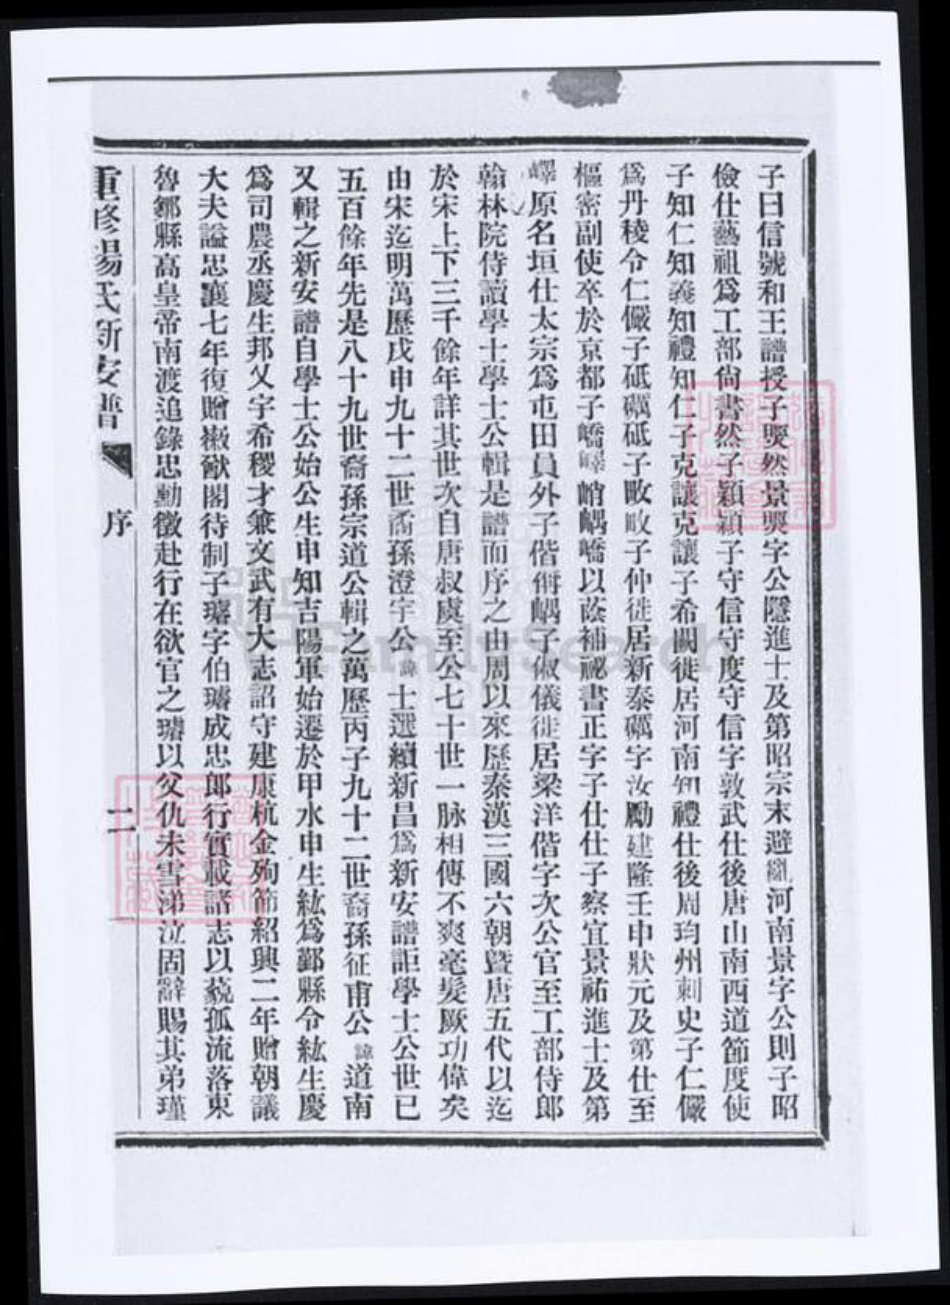 子曰信號和王譜授子煚然景煚字公隱進士及第昭宗末避亂河南景字公則子昭
儉仕藝祖爲工部尙書然子穎穎子守信守度守信字敦武仕後唐山南西道節度使
子知仁知義知禮知仁子克讓克讓子希闕徙居河南知禮仕後周均州刺史子仁儼
爲丹稜令仁儼子砥礪砥子畋畋子仲徙居新泰礪字汝勵建隆壬申狀元及第仕至
樞密副使卒於京都子嶠嶧峭嵎嶠以蔭補祕書正字子仕仕子察宜景祐進士及第
嶧原名垣仕太宗爲屯田員外子偕衕嵎子俶儀徙居梁洋偕字次公官至工部侍郎
翰林院侍讀學士學士公輯是譜而序之由周以來歷秦漢三國六朝曁唐五代以迄
於宋上下三千餘年詳其世次自唐叔虞至公七十世一脉相傳不爽毫髮厥功偉矣
由宋迄明萬歷戊申九十二世裔孫澄宇公諱士選續新昌爲新安譜詎學士公世已
五百餘年先是八十九世裔孫宗道公輯之萬歷丙子九十二世裔孫征甫公諱道南
又輯之新安譜自學士公始公生申知吉陽軍始遷於甲水申生紘爲鄞縣令紘生慶
爲司農丞慶生邦乂字希稷才兼文武有大志詔守建康杭金殉節紹興二年贈朝議
大夫謚忠襄七年復贈徽猷閣待制子璿字伯璿成忠郎行實載諸志以藐孤流落東
魯鄒縣高皇帝南渡追錄忠勳徵赴行在欲官之璿以父仇未雪涕泣固辭賜其弟瑾
重修楊氏新安譜
序
二
FamilySearch